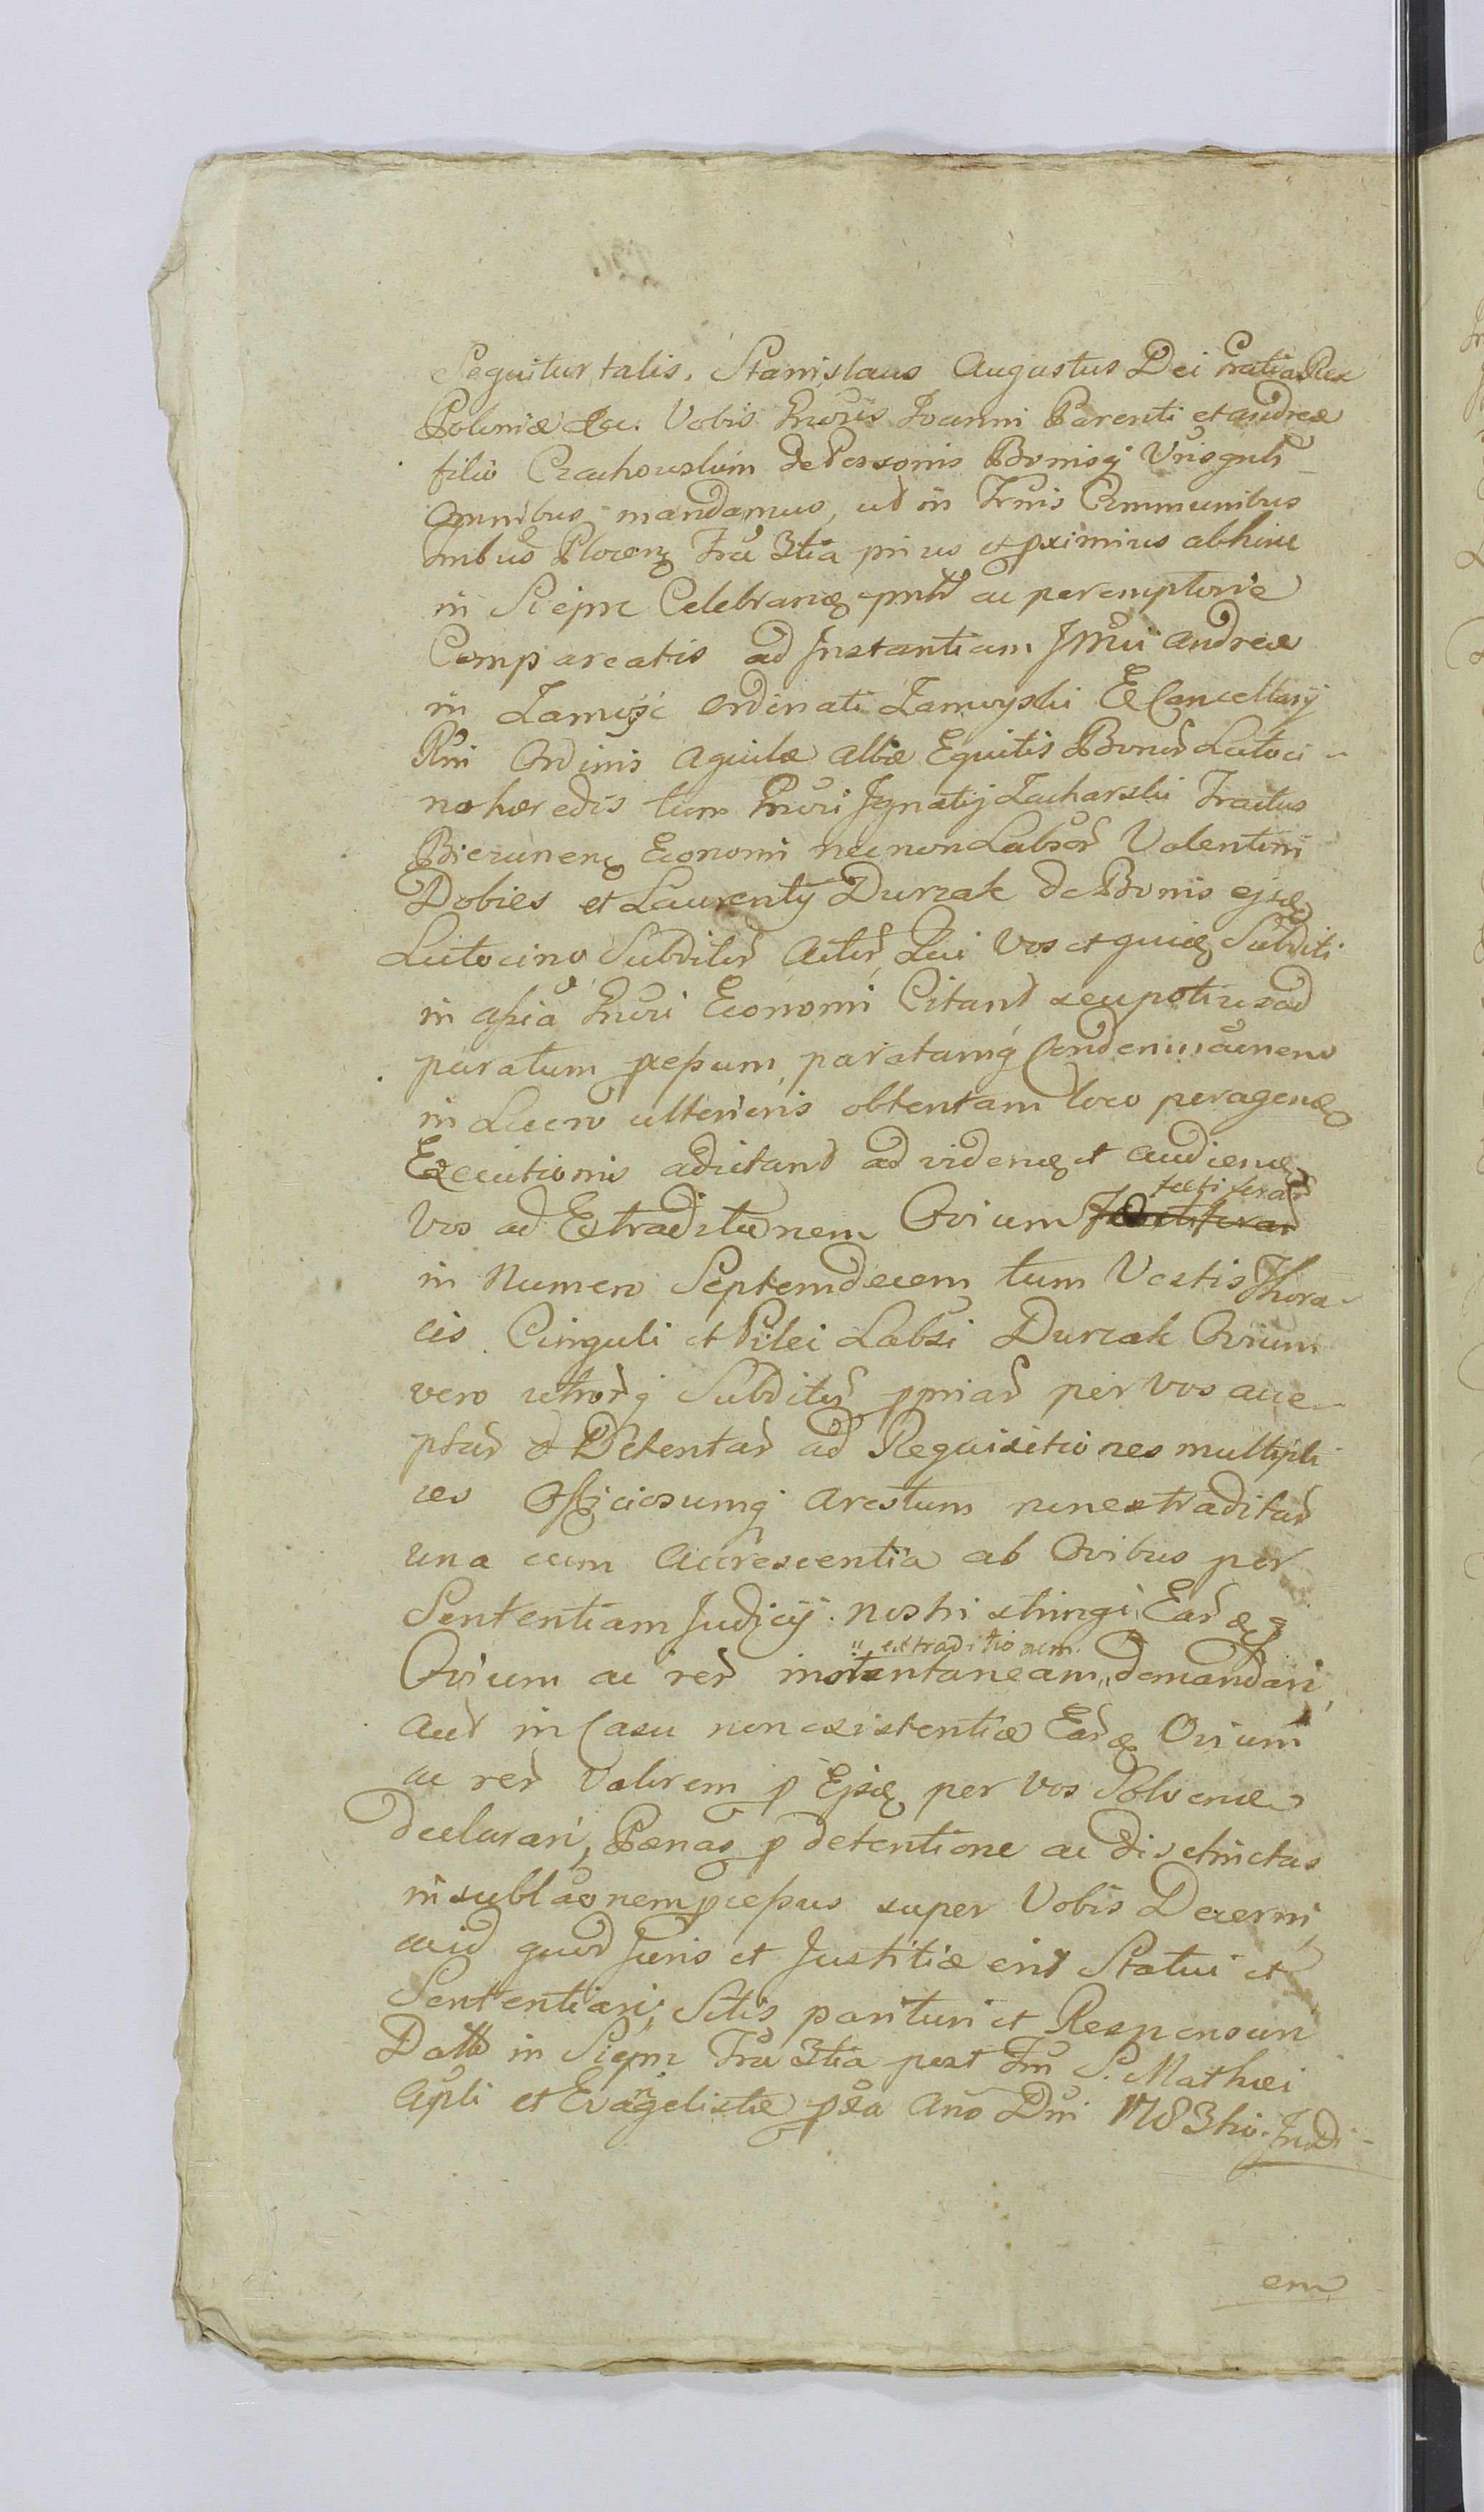 Sequitur talis. Stanislaus Augustus Dei Gratia Rex
Poloniæ &c. Vobis Gnrsis Joanni Parenti et Andreæ
filio Czachowskim de Personis Bonisq Vrisqnlt
omnibus mandamus, ut in Trnis Communibus
Tribus Plocen Fra 3tia prius et pximius abhinc
in Sierpc Celebran pntr ac peremptorie
Compareatis ad Instantiam Jllmi Andreæ
in Zamość Ordinati Zamoyski ExCancellarij
Rni Ordinis Aquilæ Albæ Equitis Bonor Lutoci-
no hæredis tum Gnrsi Ignatij Zacharski Tractus
Biezunen Economi necnon Labsor Valentini
Dobies et Laurentij Durzak de Bonis ejsd
Lutocino Subditor Actor, Qui Vos et quid Subditi
in assia Gnrsi Economi Citant seu potius ad
paratum pcessum, paratamq Condemnaonem
in Lucro ulterioris obtentam loco peragend
Executionis adcitant ad vidend et audiend
fœtiferar
Vos ad Extraditionem Ovium
in Numero Septemdecem tum Vestis Thora-
cis Cinguli et Pilei Labsi Durzak Ovium
vero utrorq Subditor ppriar per vos acce-
ptar et Detentar ad Requisitiones multipli
ces Officiosumq Arestum non extraditar
una cum Accrescentia ab Ovibus per
Sententiam Judicij nostri stringi, Eardq
extraditionem
Ovium ac rer momentaneam demandari,
aut in Casu non existentiæ Eard Ovium
ac rer Valorem p Ejsd per vos Solvend
declarari, Pænas p detentione ac districtas
in sublaonem pcessus super Vobis Decerni,
acid quod Juris et Justitiæ erit Statui et
Sententiari, Sitis parituri et Responsuri
Datt in Sierpc Fra 3tia post Fm S. Mathæi
Apli et Evangelistæ pxa Ano Dni 1783tio. Judi-
em